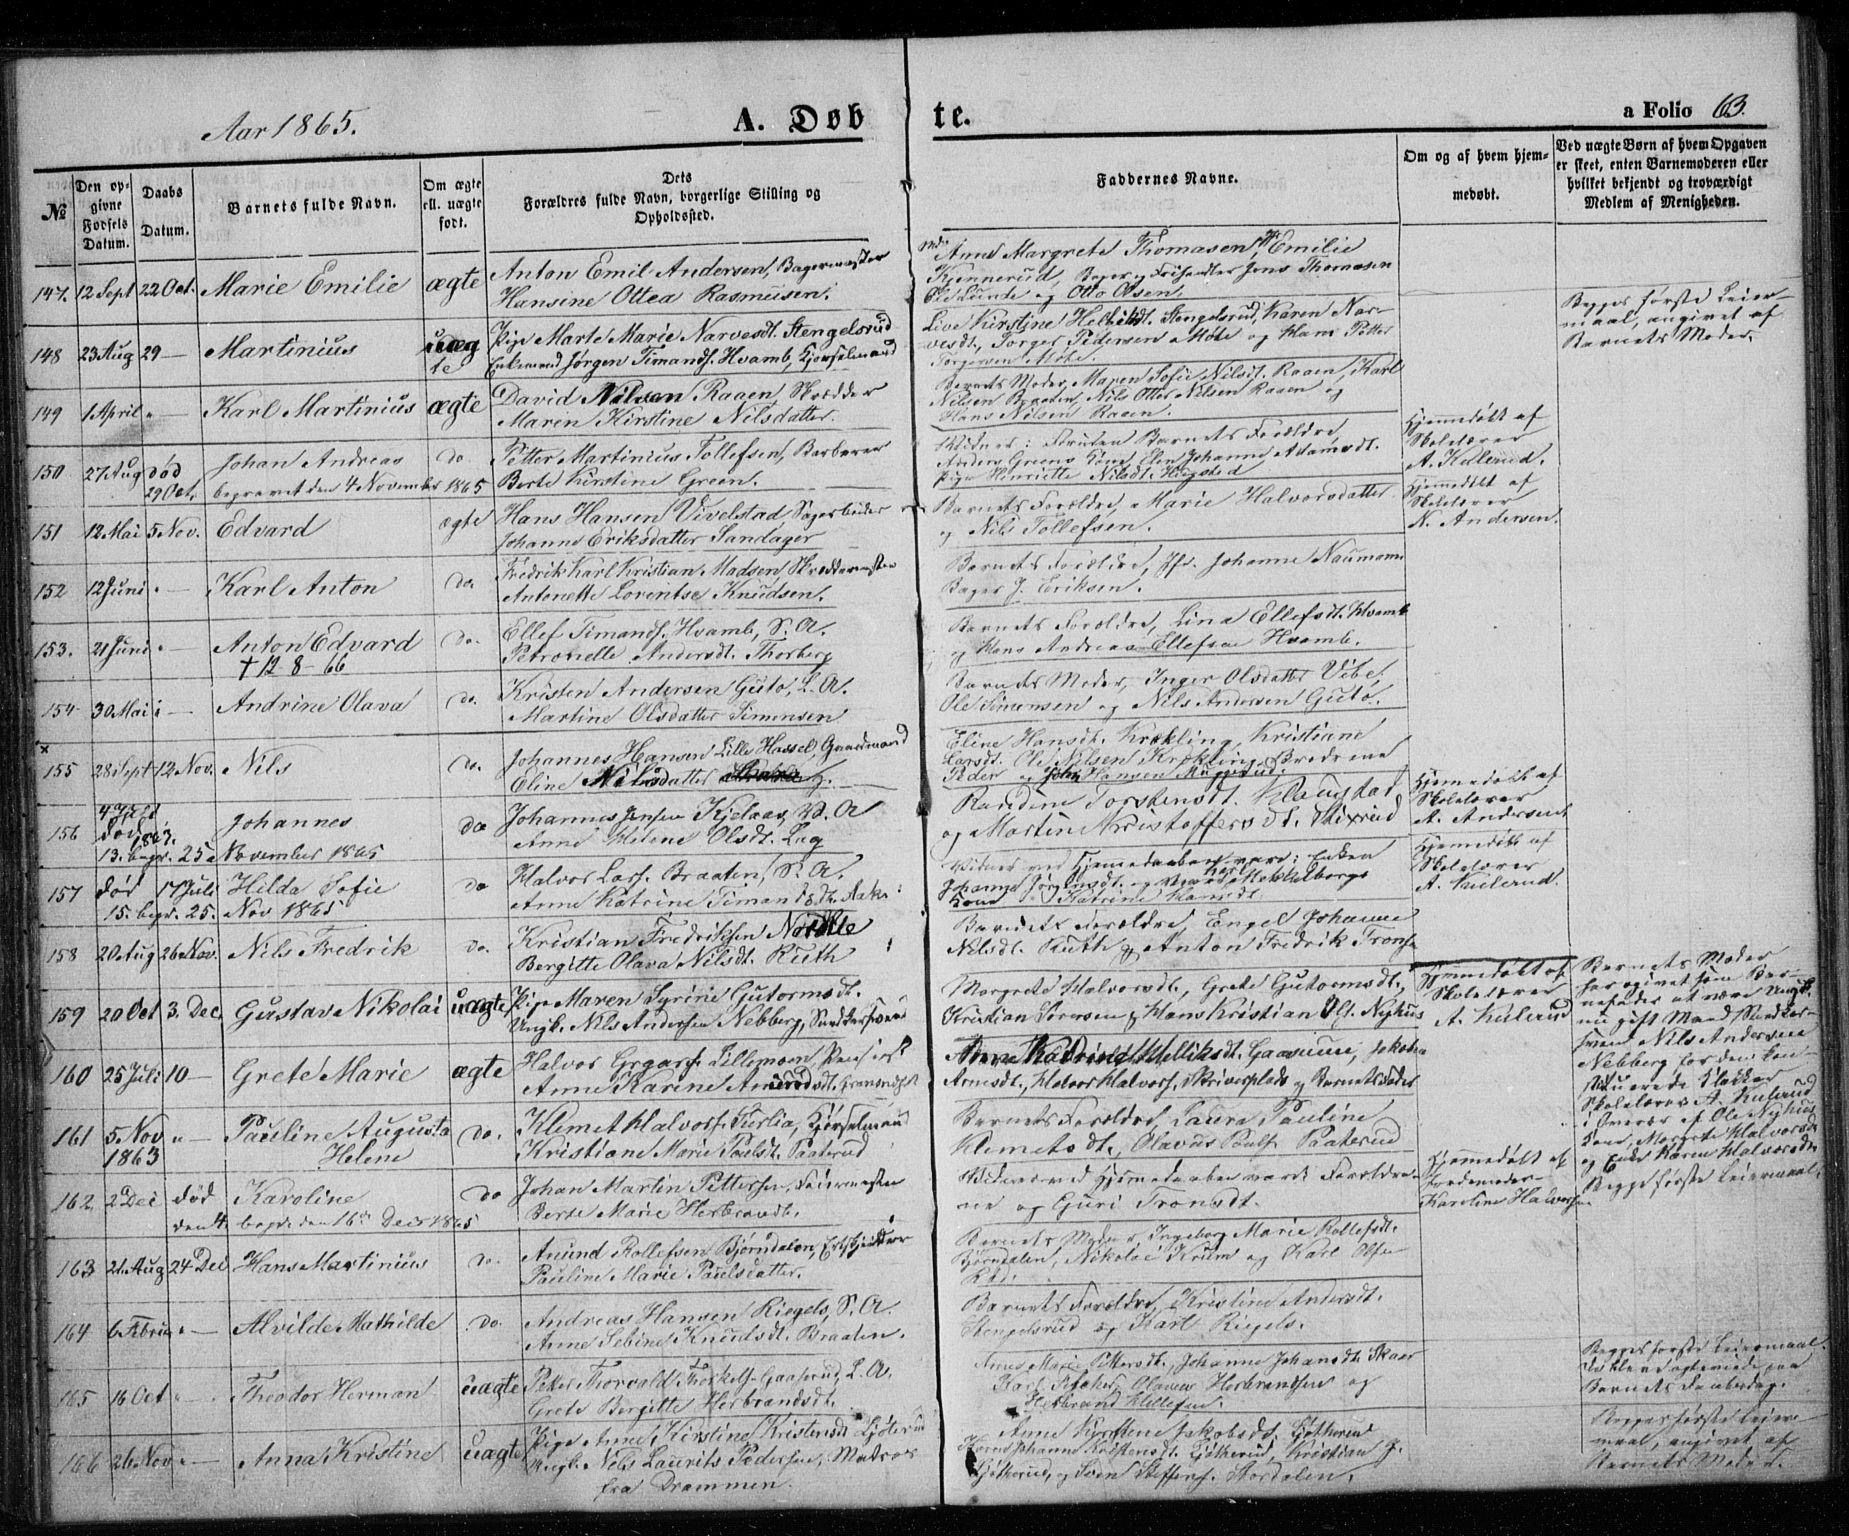 Aar 1865.
A. Døbte.
a Folio 63.
№
Den opgivne Fødsels Datum.
Daabs Datum.
Barnets fulde Navn.
Om ægte ell. uægte født.
Dets Forældres fulde Navn, borgerlige Stilling og Opholdssted.
Faddernes Navne.
Om og af hvem hjemmedøbt.
Ved uægte Børn af hvem Opgaven er skeet, enten Barnemoderen eller hvilket bekjendt og troværdigt Medlem af Menigheden.
147. 12 Sept 22 Oct. Marie Emilie ægte
Anton Emil Andersen, Bagermester
Hansine Ottea Rasmusen.
Anne Margrete Thomasen, Emilie
Kunnerud, Bager Jens Thomasen
Lunde og Otto Olsen.
148 23 Aug 29 — Martinius uægte
Pige Marte Marie Narvesdt. Stengelsrud
Enkemand Jørgen Timandsf. Hvamb, Kjørselmand
Live Kirstine Stengelsrud, Karen Narvesdt., Torger Pedersen Mohe og Hans Petter
Torgersen Mohe.
Begges første Leiermaal, angivet af
Barnets Moder.
149 1 April " — Karl Martinius ægte
David Nilsen Raaen, Skrædder
Maren Kirstine Nilsdatter.
Barnets Moder, Maren Sofie Nilsdt. Raaen, Karl
Nilsen Braaten, Nils Otter Nilsen Raaen og
Hans Nilsen Raaen.
150 27 Aug død 29 Oct. Johan Andreas do.
begravet den 4 November 1865
Petter Martinius Tollefsen, Barberer
Berte Kirstine Green.
Vidner: Foruden Barnets Forældre
Anders Greens Kone Elen Johanne Adamsdt.
Pige Henriette Nilsdt. Hægstad
Hjemmedøbt af
Skolelærer
A. Kulerud.
151 12 Mai 5 Nov. Edvard ægte
Hans Hansen Vivelstad Sagarbeider
Johanne Eriksdatter Sandager
Barnets Forældre, Marie Halvorsdatter
og Nils Tollefsen.
Hjemmedøbt af
Skolelærer
N. Andersen.
152 12 Juni " — Karl Anton do.
Fredrik Karl Kristian Madsen, Skræddermester
Antonette Lorentse Knudsen.
Barnets Forældre, Jfr. Johanne Naumann
Bager J. Eriksen.
153. 21 Juni " — Anton Edvard do.
† 12-8-66
Ellef Timandsf. Hvamb, S. A.
Petronelle Andersdt. Thorberg
Barnets Forældre, Lina Ellefsdt. Hvamb
og Hans Andreas Ellefsen Hvamb.
154 30 Mai " — Andrine Olava do.
Kristen Andersen Guto, L. A.
Martine Olsdatter Simensen
Barnets Moder, Inger Olsdatter Vibe,
Ole Simensen og Nils Andersen Guto.
× 155 28 Sept 12 Nov. Nils do.
Johannes Hansen Lille Hassel, Gaardmand
Eline Nilsdatter
Eline Hansdt. Krekling, Kristiane
Larsdt. Ole Nilsen Krekling, Brødrene
Peder og John Hansen
156 4 Juli 1863. død 13. begr. 25 November 1865 Johannes do
Johannes Jensen Kjelaas, S. A.
Anne Helene Olsdt. Lug
Randine Torstensdt. Klaugstad
og Martin Kristoffersdt.
Hjemmedøbt af
Skolelærer
A. Andersen
157 død 17 Juli Hilda Sofie do
15. begr. 25. Nov 1865
Halvor Larsf. Braaten, S. A.
Anne Katrine Timandsdt. Aaker
Vidner ved Hjemmedaaben vare: Enken
Johanne Jørgensdt. og
Kone Katrine Hansdt.
Hjemmedøbt af
Skolelærer
A. Kulerud.
158 20 Aug 26 Nov. Nils Fredrik do.
Kristian Fredriksen
Bergitte Olava Nilsdt. Ruth
Barnets Forældre, Engel Johanne
Nilsdt. Ruth & Anton Fredrik
159 20 Oct 3. Dec. Gustav Nikolai uægte
Pige Maren Syrine Gutormsdt.
Ungk. Nils Andersen Nebberg, Snedkersvend
Margrete Halvorsdt., Grete Gutormsdt.,
Kristian Sørensen & Hans Kristian Ols. Nyhus
Hjemmedøbt af
Skolelærer
A. Kulerud
Barnets Moder
har opgivet som Barnefader at være Ungk.
nu gift Mand, Snedkersvend Nils Andersen
Nebberg for den konstituerede Klokker
Skolelærer A. Kulerud
i Overvær af Ole Nyhus
Kone, Margrete Halvorsdt.
og Enke Karen Halvorsdt.
Begges første Leiermaal.
160 25 Juli 10 — Grete Marie ægte
Halvor Gregarsf. Tillemoen,
Anne Karine Amundsdt.
Anne Katrine Gaasmui, Jakobea
Arnesdt., Halvor Halvorsf. Skriverplads og Barnets Fader
161 5 Nov 1863 " — Pauline Augusta Helene do.
Klemet Halvorsf. Furlia, Kjørselmand
Kristiane Marie Poulsdt. Paaterud
Barnets Forældre, Laura Pauline
Klemetsdt., Olavus Poulsf. Paaterud
162. 2 Dec død den 4. Karoline do
begr. den 16de Decbr 1865
Johan Martin Pettersen, Feiermester
Berte Marie Herbrandsdt.
Vidner ved Hjemmedaaben vare Forældrene og Guri Tronsdt.
Hjemmedøbt af
Jordemoder
Karoline Halvorsen
163 21. Aug 24 Dec Hans Martinius do.
Anund Rollefsen Bjørndalen,
Pauline Marie Paulsdatter.
Barnets Moder, Ingeborg Marie Rollefsdt.
Bjørndalen, Nikolai Krum og Karl Olsen
164 6 Febru " — Alvilde Mathilde do.
Andreas Hansen Riegels, S. A.
Anne Sebine Knudsdt. Braaten.
Barnets Forældre, Kristine Andersdt.
Stengelsrud og Karl Riegels.
165 16 Oct " — Theodor Herman uægte
Petter Thorvald Thorkelsf. Gaaserud, L. A.
Grete Bergitte Herbrandsdt.
Anne Marie Pettersdt., Johanne Johansdt. Skaer
Karl Olaves Herbrandsen og
Herbrand
Begges første Leiermaal.
Forældrene
Barnets Daabsdag.
166 26 Nov " — Anna Kristine uægte
Pige Anne Kirstine Kristensdt. Gjøterud
Ungk. Nils Laurits Pedersen, Matros
fra Drammen.
Anne Kirstine Jakobsdt. Gjøtherud
Karen Johanne Gjøtherud, Kristian J.
Gjøtherud, og Sven Steffensf. Stordalen.
Begges første Leiermaal, angivet af
Barnets Moder.